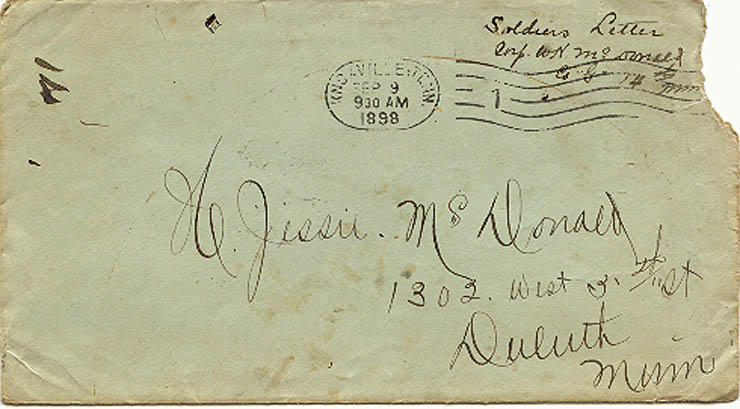 Soldiers Letter
Corp. W H McDonald
Co G 14 Minn
KNOXVILLE, TENN.
SEP 9
930 AM
1898
1
Jessie. Mc Donald
1302. West 3. St
Duluth
Minn